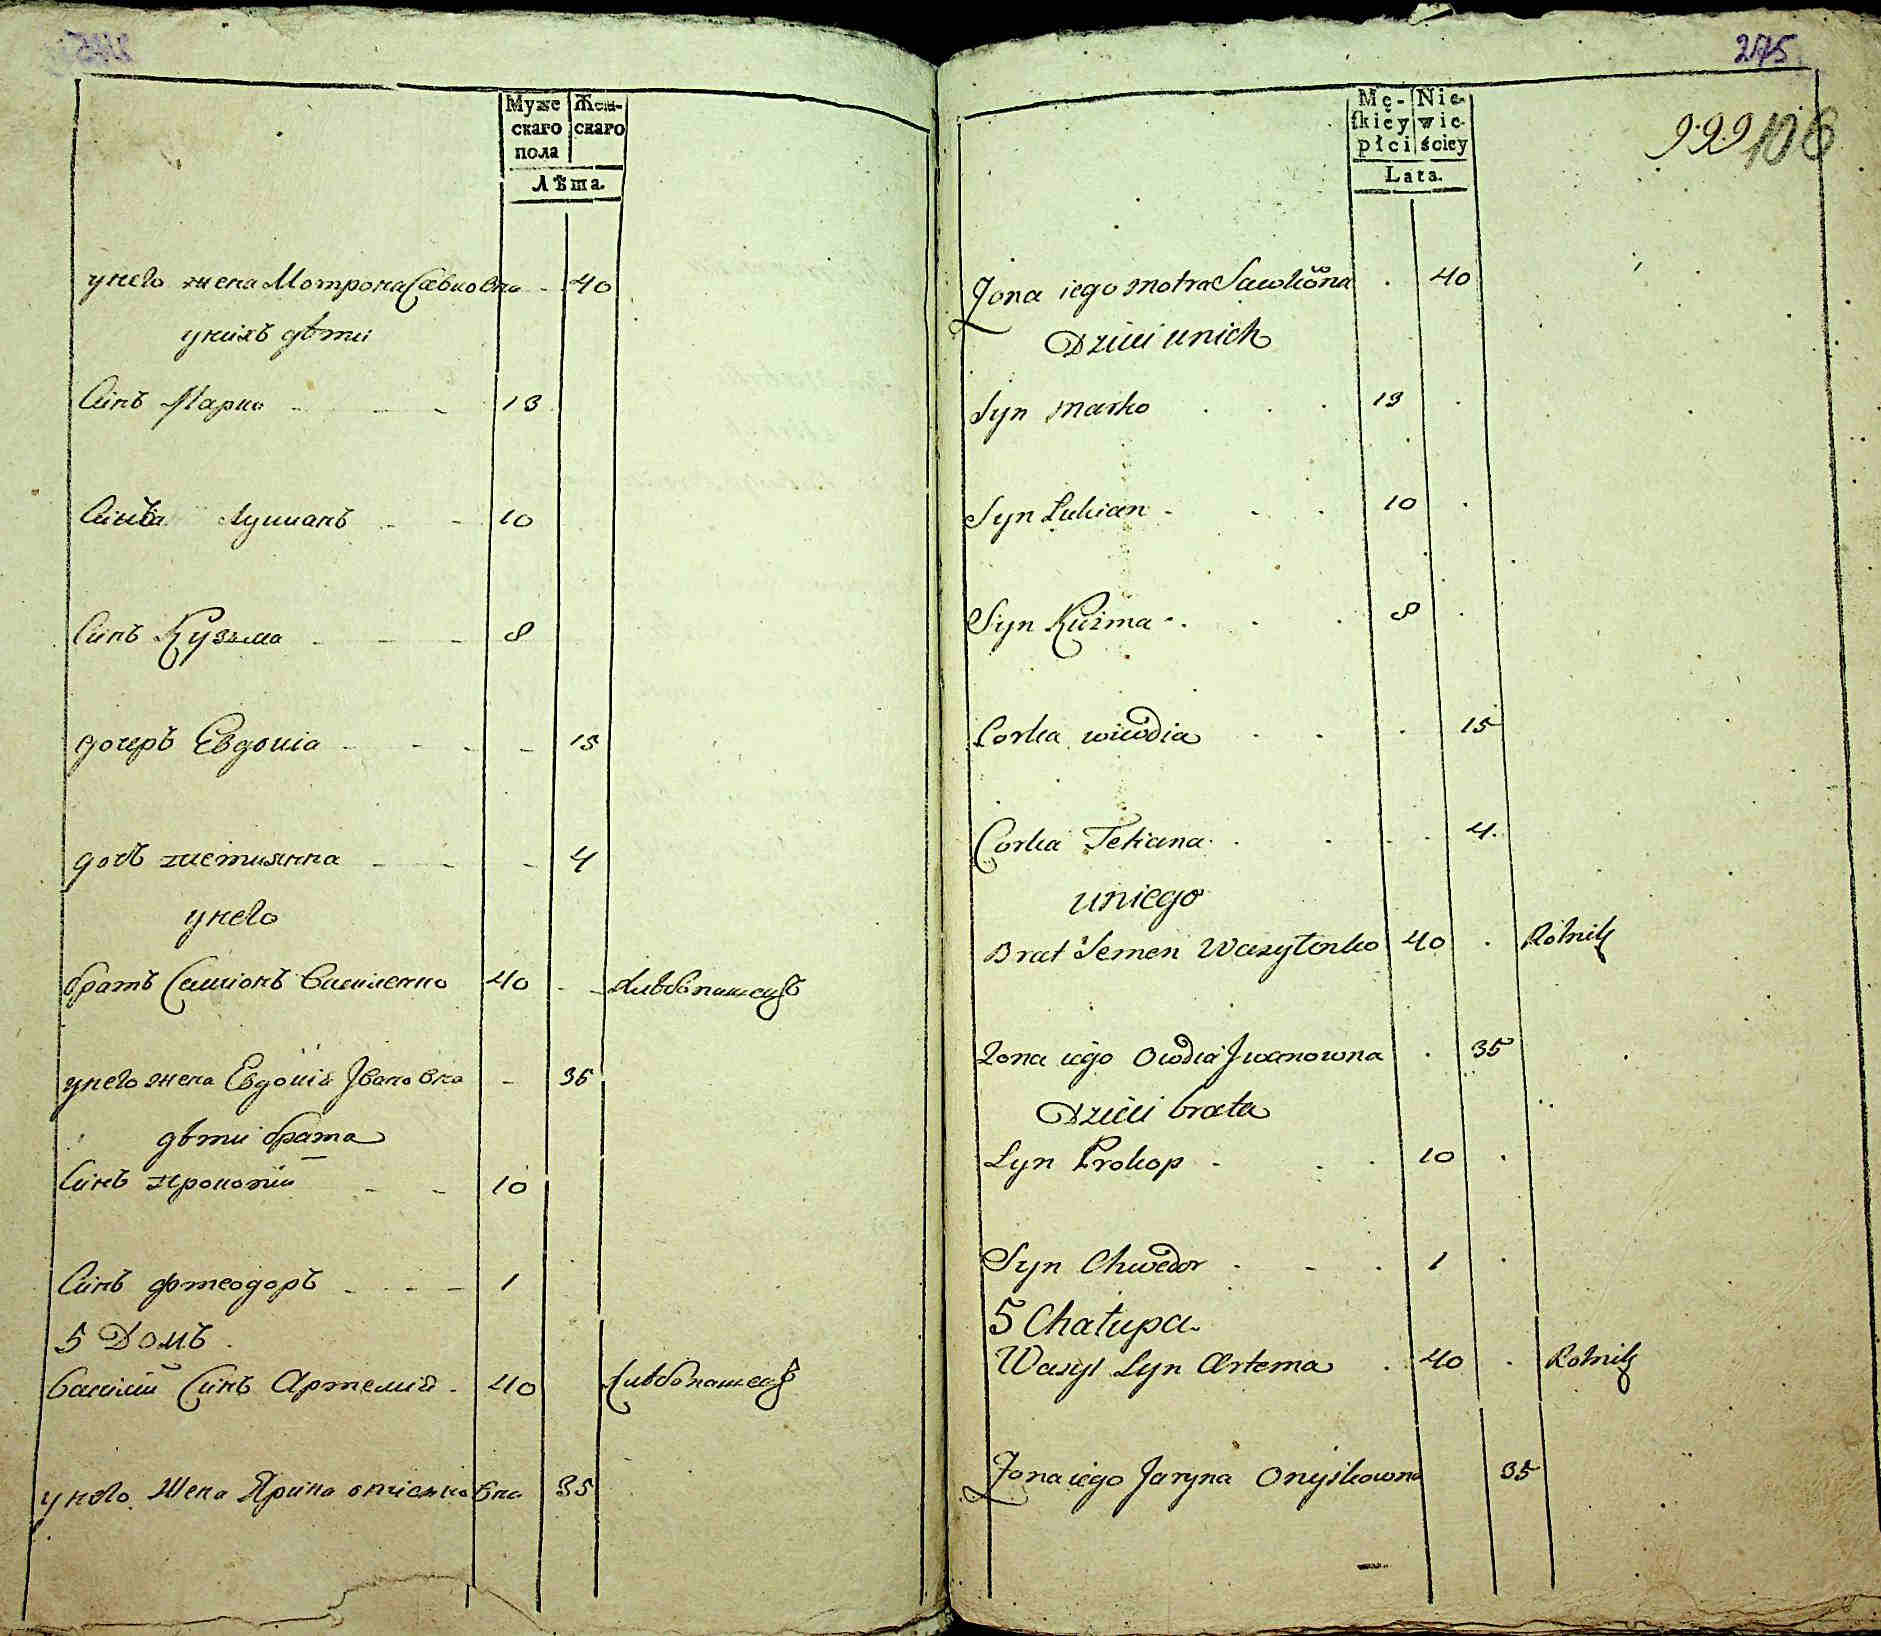 Муже Жен-
скаго скаго
пола
Лѣта.
унего жена Мотрона Савковна 40
унихъ дѣти
Синъ Марко 13
Синъ Лукианъ 10
Синъ Кузьма 8
дочеръ Евдокіа 15
дочъ Тетиянна 4
унего
братъ Симіонъ Василенко 40 хлѣбопашецъ
унего жена Евдокіа Івановна 35
дѣти брата
Синъ Прокопій 10
Синъ Фтеодоръ 1
5 Домъ
Василій Синъ Артемій 40 хлѣбопашецъ
унего Жена Ярина 35
275
999 106
Mę- Nie-
skiey wie-
płci ściey
Lata.
Żona iego Motra Sawkowna 40
Dzieci unich
Syn Marko 13
Syn Łukian 10
Syn Kuźma 8
Corka wiewdia 15
Corka Tetiana 4
uniego
Brat Semen Wasylenko 40 Rolnik
Żona iego Owdia Jwanowna 35
Dzieci brata
Syn Prokop 10
Syn Chwedor 1
5 Chałupa
Wasyl Syn Artema 40 Rolnik
Żona iego Jaryna Onyśkowna 35